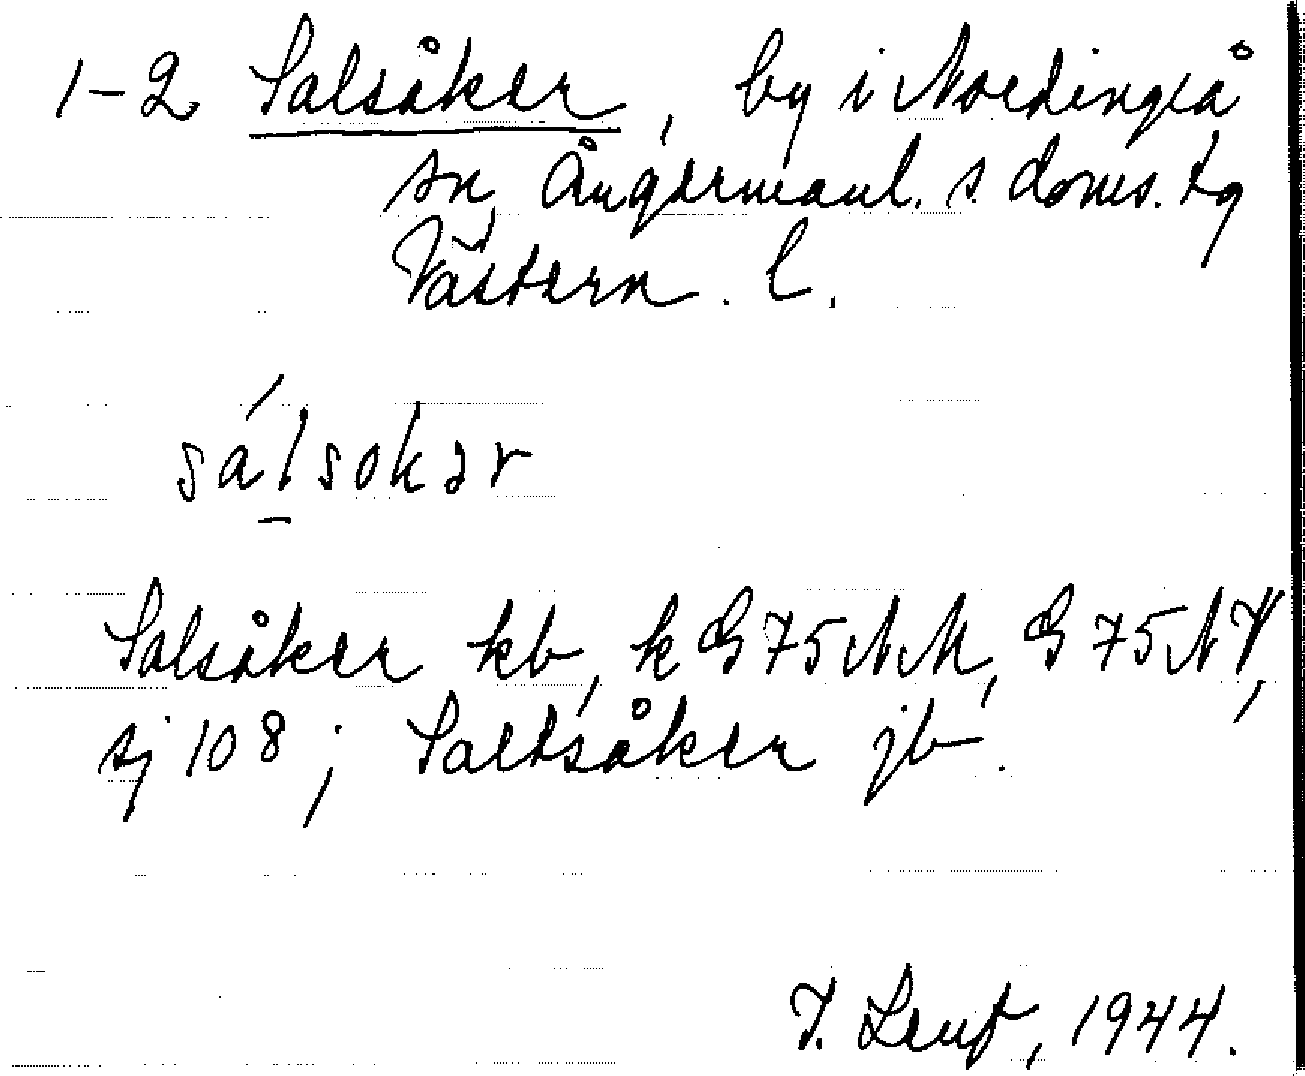 1-2 Salsåker, by i Nordingrå
sn, Ångermanl. s. doms. tg
Västern. l.
sálsokər
Salsåker kb, k G75NM, G75NV,
sj 108; Saltsåker jb.
I. Leuf, 1944.